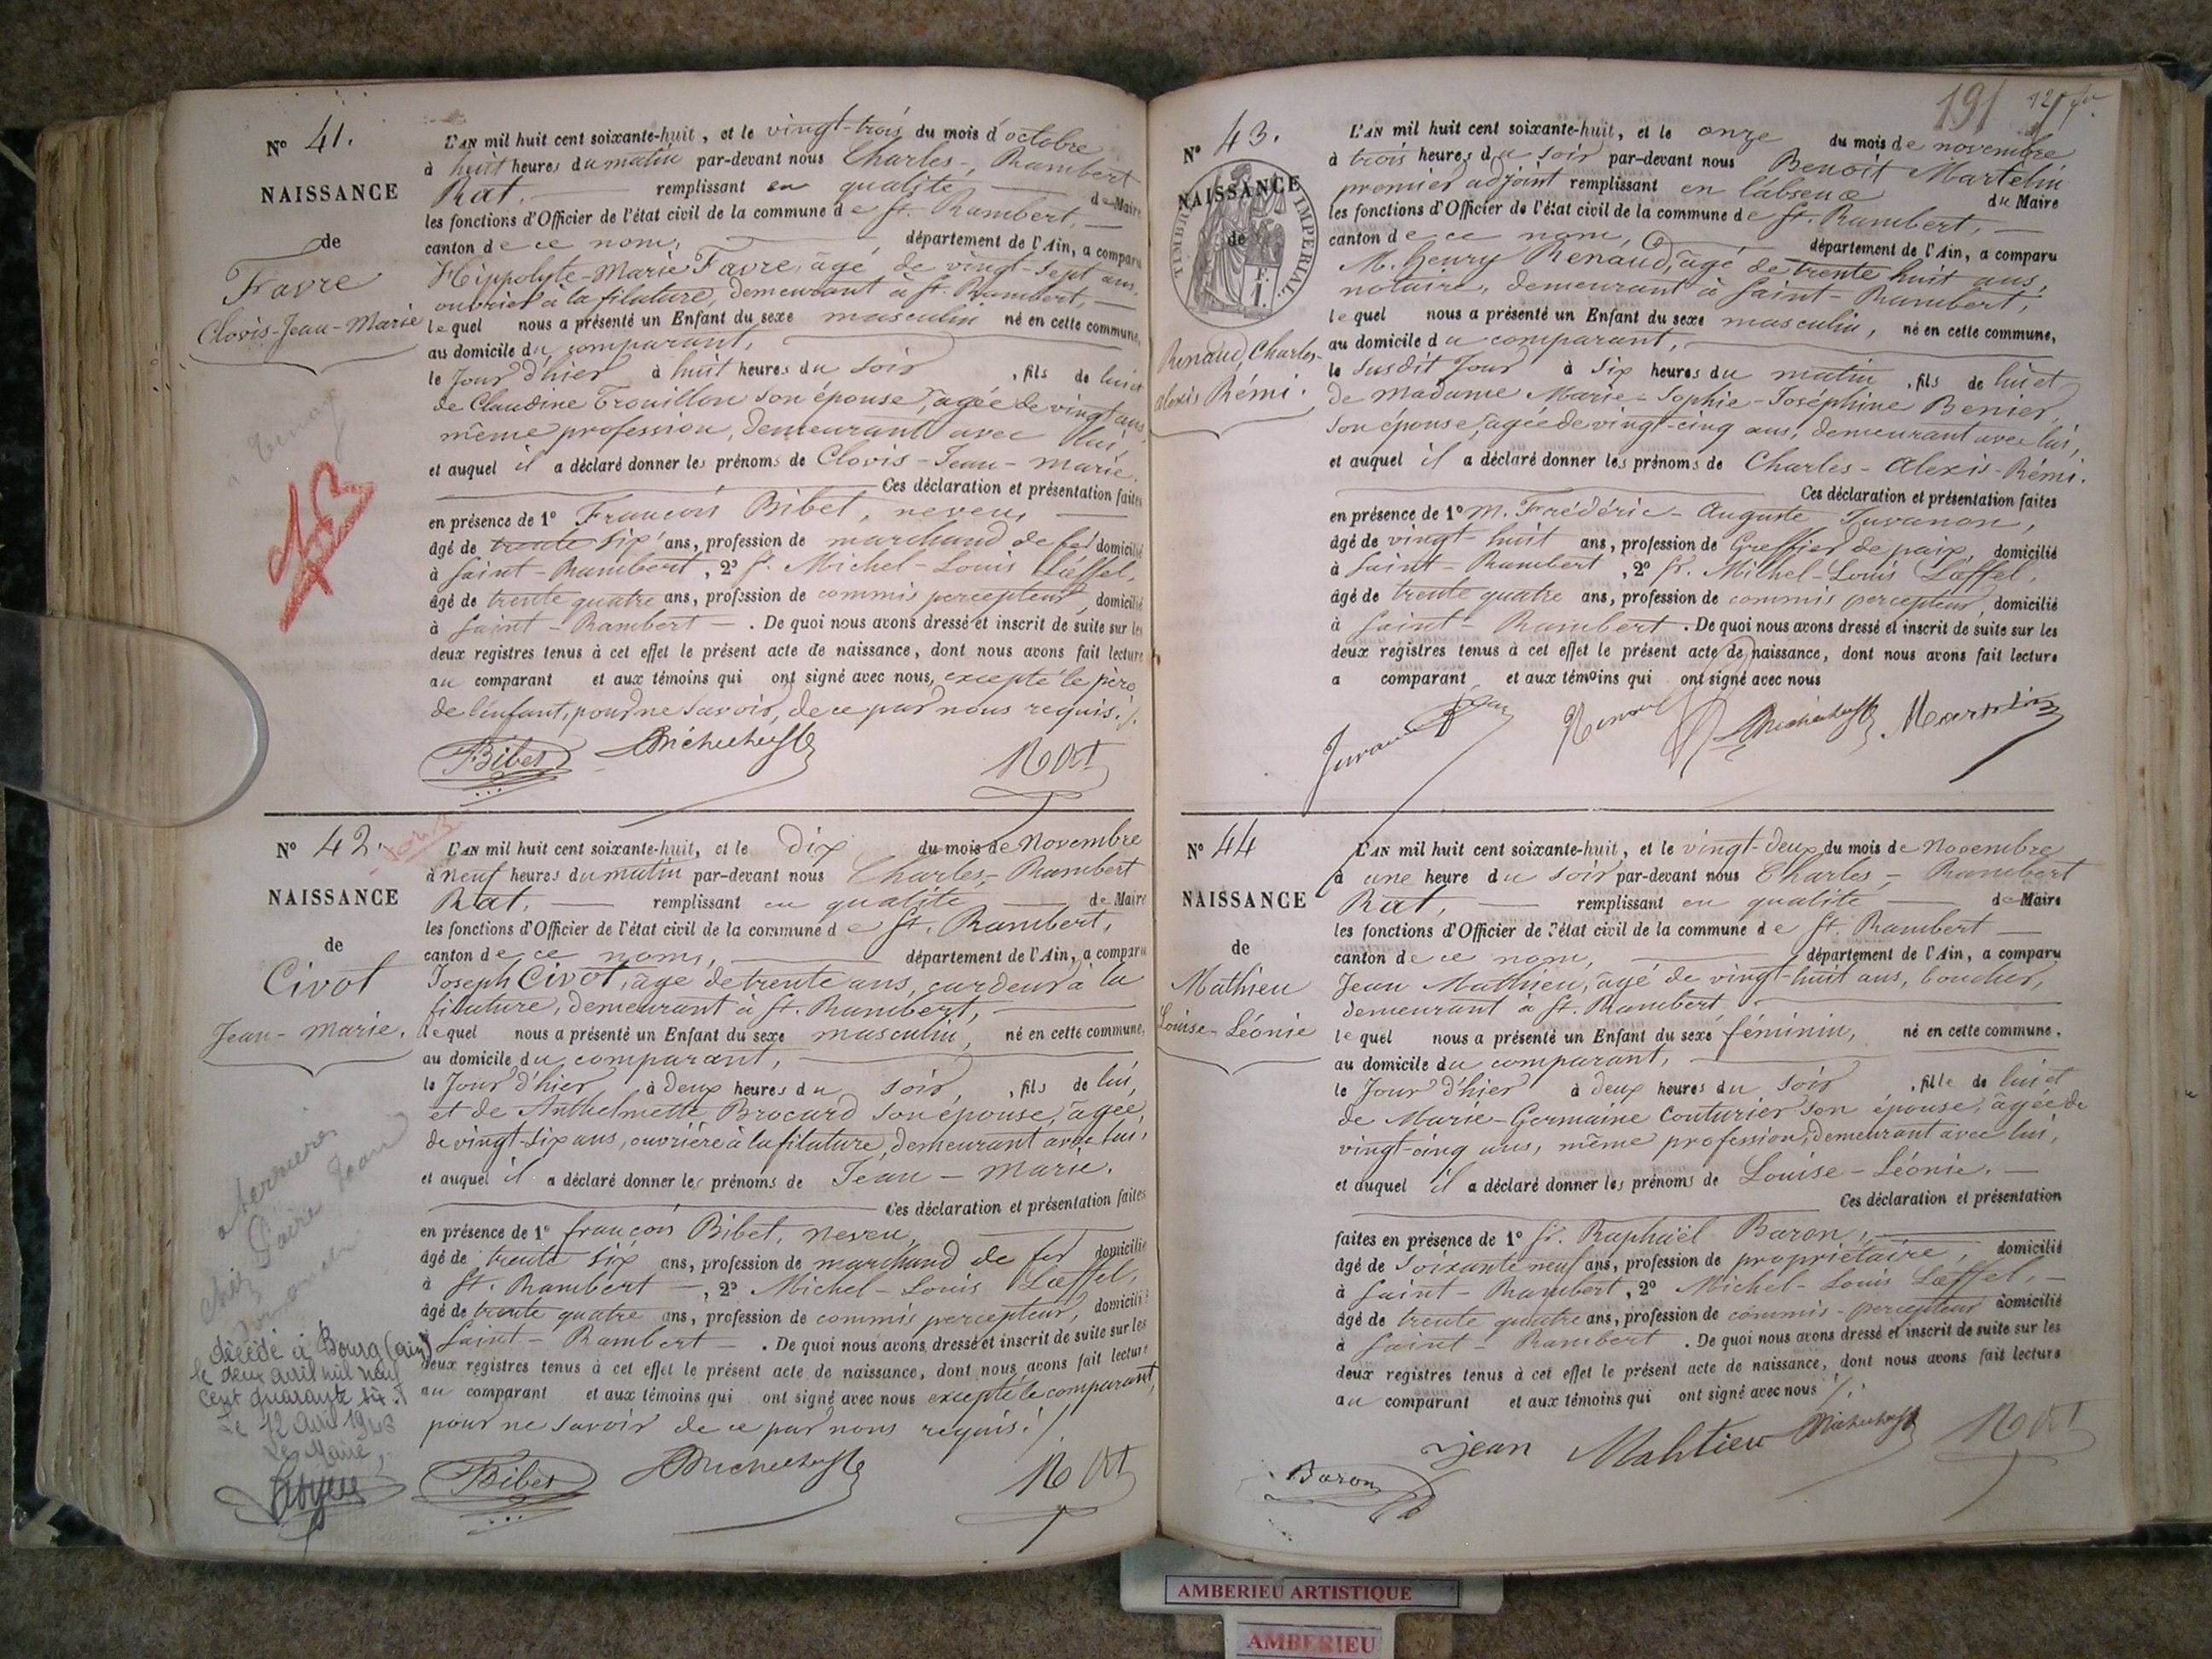 N° 41.
NAISSANCE
de
Favre
Clovis-Jean-Marie
L'AN mil huit cent soixante-huit, et le vingt-trois du mois d'octobre
à huit heures du matin par-devant nous Charles-Rambert
Rat, remplissant en qualité de Maire
les fonctions d'Officier de l'état civil de la commune de St. Rambert,
canton de ce nom, département de l'Ain, a comparu
Hippolyte-Marie Favre, âgé de vingt-sept ans,
ouvrier à la filature, demeurant à St. Rambert,
lequel nous a présenté un Enfant du sexe masculin né en cette commune,
au domicile du comparant,
le Jour d'hier à huit heures du soir, fils de lui et
de Claudine Trouillon son épouse, âgée de vingt ans,
même profession, demeurant avec lui,
et auquel il a déclaré donner les prénoms de Clovis-Jean-Marie.
Ces déclaration et présentation faites
en présence de 1° François Bibet, neveu,
âgé de trente six ans, profession de marchand de fer domicilié
à Saint-Rambert, 2° Sr. Michel-Louis Lœffel,
âgé de trente quatre ans, profession de commis percepteur, domicilié
à Saint-Rambert. De quoi nous avons dressé et inscrit de suite sur les
deux registres tenus à cet effet le présent acte de naissance, dont nous avons fait lecture
au comparant et aux témoins qui ont signé avec nous, excepté le père
de l'enfant, pour ne savoir, de ce par nous requis./.
Bibet Rat
N° 42.
NAISSANCE
de
Civot
Jean-Marie.
L'AN mil huit cent soixante-huit, et le dix du mois de Novembre
à neuf heures du matin par-devant nous Charles-Rambert
Rat, remplissant en qualité de Maire
les fonctions d'Officier de l'état civil de la commune de St. Rambert,
canton de ce nom, département de l'Ain, a comparu
Joseph Civot, âgé de trente ans, cardeur à la
filature, demeurant à St. Rambert,
lequel nous a présenté un Enfant du sexe masculin, né en cette commune,
au domicile du comparant,
le Jour d'hier, à deux heures du soir, fils de lui,
et de Anthelmette Brocard son épouse, âgée
de vingt-six ans, ouvrière à la filature, demeurant avec lui,
et auquel il a déclaré donner les prénoms de Jean-Marie.
Ces déclaration et présentation faites
en présence de 1° François Bibet, neveu,
âgé de trente six ans, profession de marchand de fer domicilié
à St. Rambert, 2° Michel-Louis Lœffel,
âgé de trente quatre ans, profession de commis percepteur, domicilié
à Saint-Rambert. De quoi nous avons dressé et inscrit de suite sur les
deux registres tenus à cet effet le présent acte de naissance, dont nous avons fait lecture
au comparant et aux témoins qui ont signé avec nous excepté le comparant,
pour ne savoir de ce par nous requis./.
Bibet Rat
décédé à Bourg (Ain)
le deux avril mil neuf
cent quarante six.
Le 12 Avril 1946
Le Maire,
191
N° 43.
NAISSANCE
de
TIMBRE IMPERIAL.
F.
1.
Renaud, Charles-
Alexis Rémi.
L'AN mil huit cent soixante-huit, et le onze du mois de novembre
à trois heures du soir par-devant nous Benoît Martelin
premier adjoint remplissant en l'absence du Maire
les fonctions d'Officier de l'état civil de la commune de St. Rambert,
canton de ce nom, département de l'Ain, a comparu
M. Henry Renaud, âgé de trente huit ans,
notaire, demeurant à Saint-Rambert,
lequel nous a présenté un Enfant du sexe masculin, né en cette commune,
au domicile du comparant,
le susdit Jour à six heures du matin, fils de lui et
de Madame Marie-Sophie-Joséphine Benier,
son épouse, âgée de vingt-cinq ans, demeurant avec lui,
et auquel il a déclaré donner les prénoms de Charles-Alexis-Rémi.
Ces déclaration et présentation faites
en présence de 1° M. Frédéric-Auguste Juvanon,
âgé de vingt-huit ans, profession de Greffier de paix, domicilié
à Saint-Rambert, 2° Sr. Michel-Louis Lœffel,
âgé de trente quatre ans, profession de commis percepteur, domicilié
à Saint-Rambert. De quoi nous avons dressé et inscrit de suite sur les
deux registres tenus à cet effet le présent acte de naissance, dont nous avons fait lecture
a comparant et aux témoins qui ont signé avec nous
Renaud Martelin
N° 44
NAISSANCE
de
Mathieu
Louise-Léonie
L'AN mil huit cent soixante-huit, et le vingt-deux du mois de Novembre
à une heure du soir par-devant nous Charles-Rambert
Rat, remplissant en qualité de Maire
les fonctions d'Officier de l'état civil de la commune de St. Rambert
canton de ce nom, département de l'Ain, a comparu
Jean Mathieu, âgé de vingt-huit ans, boucher,
demeurant à St. Rambert
lequel nous a présenté un Enfant du sexe féminin, né en cette commune.
au domicile du comparant,
le Jour d'hier à deux heures du soir, fille de lui et
de Marie-Germaine Couturier son épouse, âgée de
vingt-cinq ans, même profession, demeurant avec lui,
et auquel il a déclaré donner les prénoms de Louise-Léonie.
Ces déclaration et présentation
faites en présence de 1° Sr. Raphaël Baron,
âgé de soixante neuf ans, profession de propriétaire, domicilié
à Saint-Rambert, 2° Michel-Louis Lœffel,
âgé de trente quatre ans, profession de commis-percepteur domicilié
à Saint-Rambert. De quoi nous avons dressé et inscrit de suite sur les
deux registres tenus à cet effet le présent acte de naissance, dont nous avons fait lecture
au comparant et aux témoins qui ont signé avec nous./.
jean Mahtieu Rat
Baron
AMBERIEU ARTISTIQUE
AMBERIEU